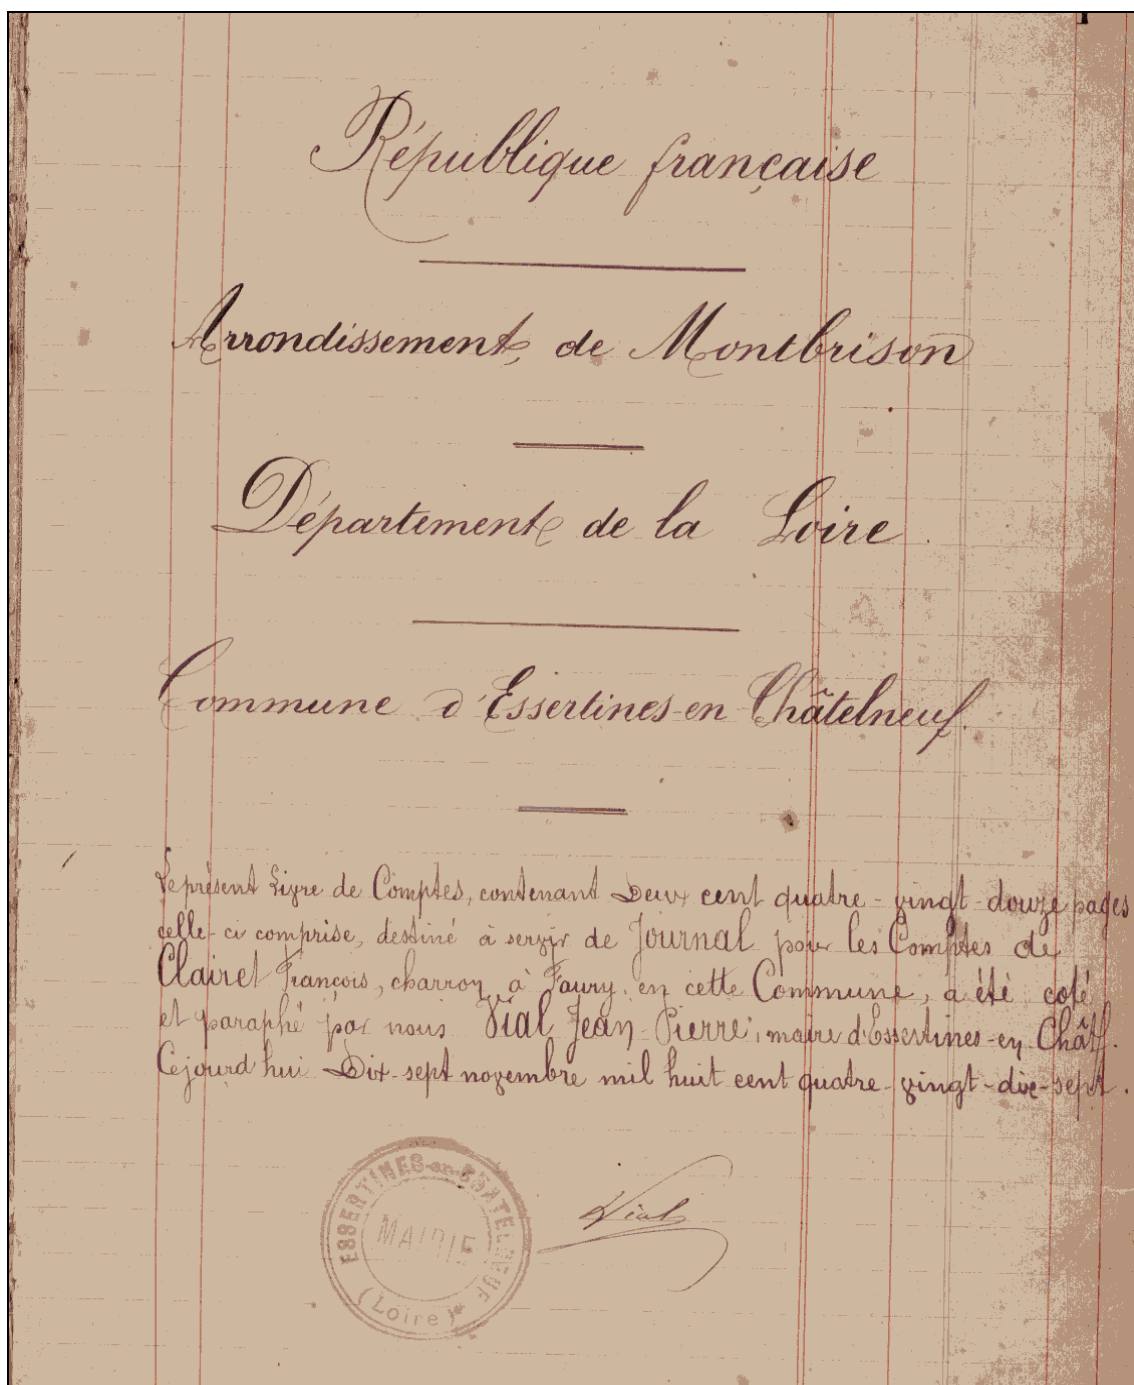 République française
Arrondissement de Montbrison
Département de la Loire.
Commune d'Essertines-en-Châtelneuf.
Le présent Livre de Comptes, contenant Deux cent quatre-vingt-douze pages
celle-ci comprise, destiné à servir de Journal pour les Comptes de
Clairet François, charron à Faury, en cette Commune, a été coté
et paraphé par nous Vial Jean-Pierre, maire d'Essertines-en-Chât.
Cejourd'hui Dix-sept novembre mil huit cent quatre-vingt-dix-sept.
ESSERTINES-en-CHATELNEUF
MAIRIE
(Loire)
Vial